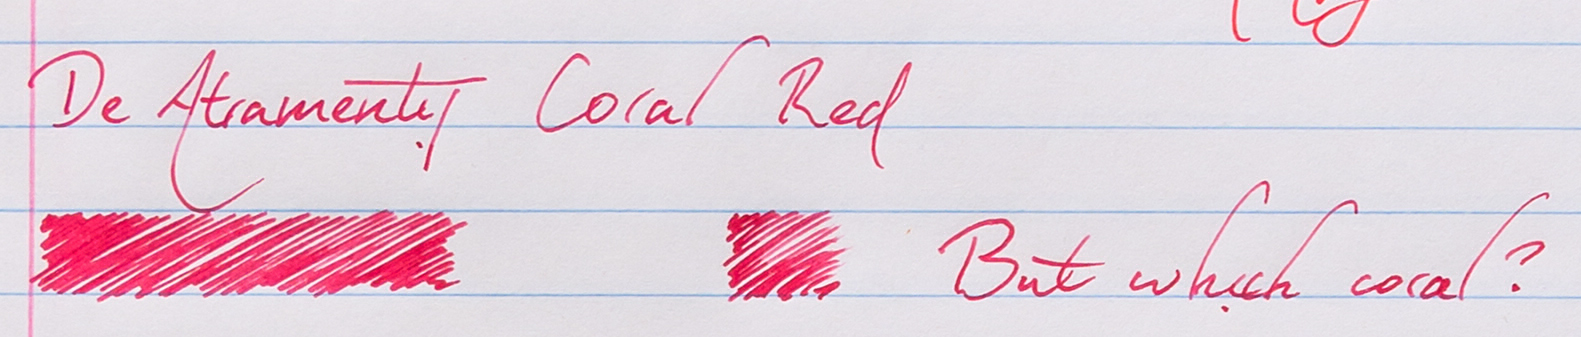 De Atramentis Coral Red
But which coral?